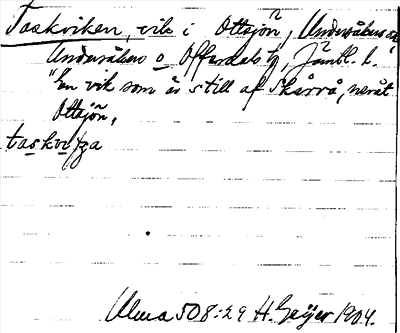 Taskviken, vik i Ottsjön, Undersåkers sn
Undersåkers o Offerdals tg, Jämtl. l.
"En vik som är still af Skärvå, neråt
Ottsjön,
Ulma 508:29 H. Geijer 1904.